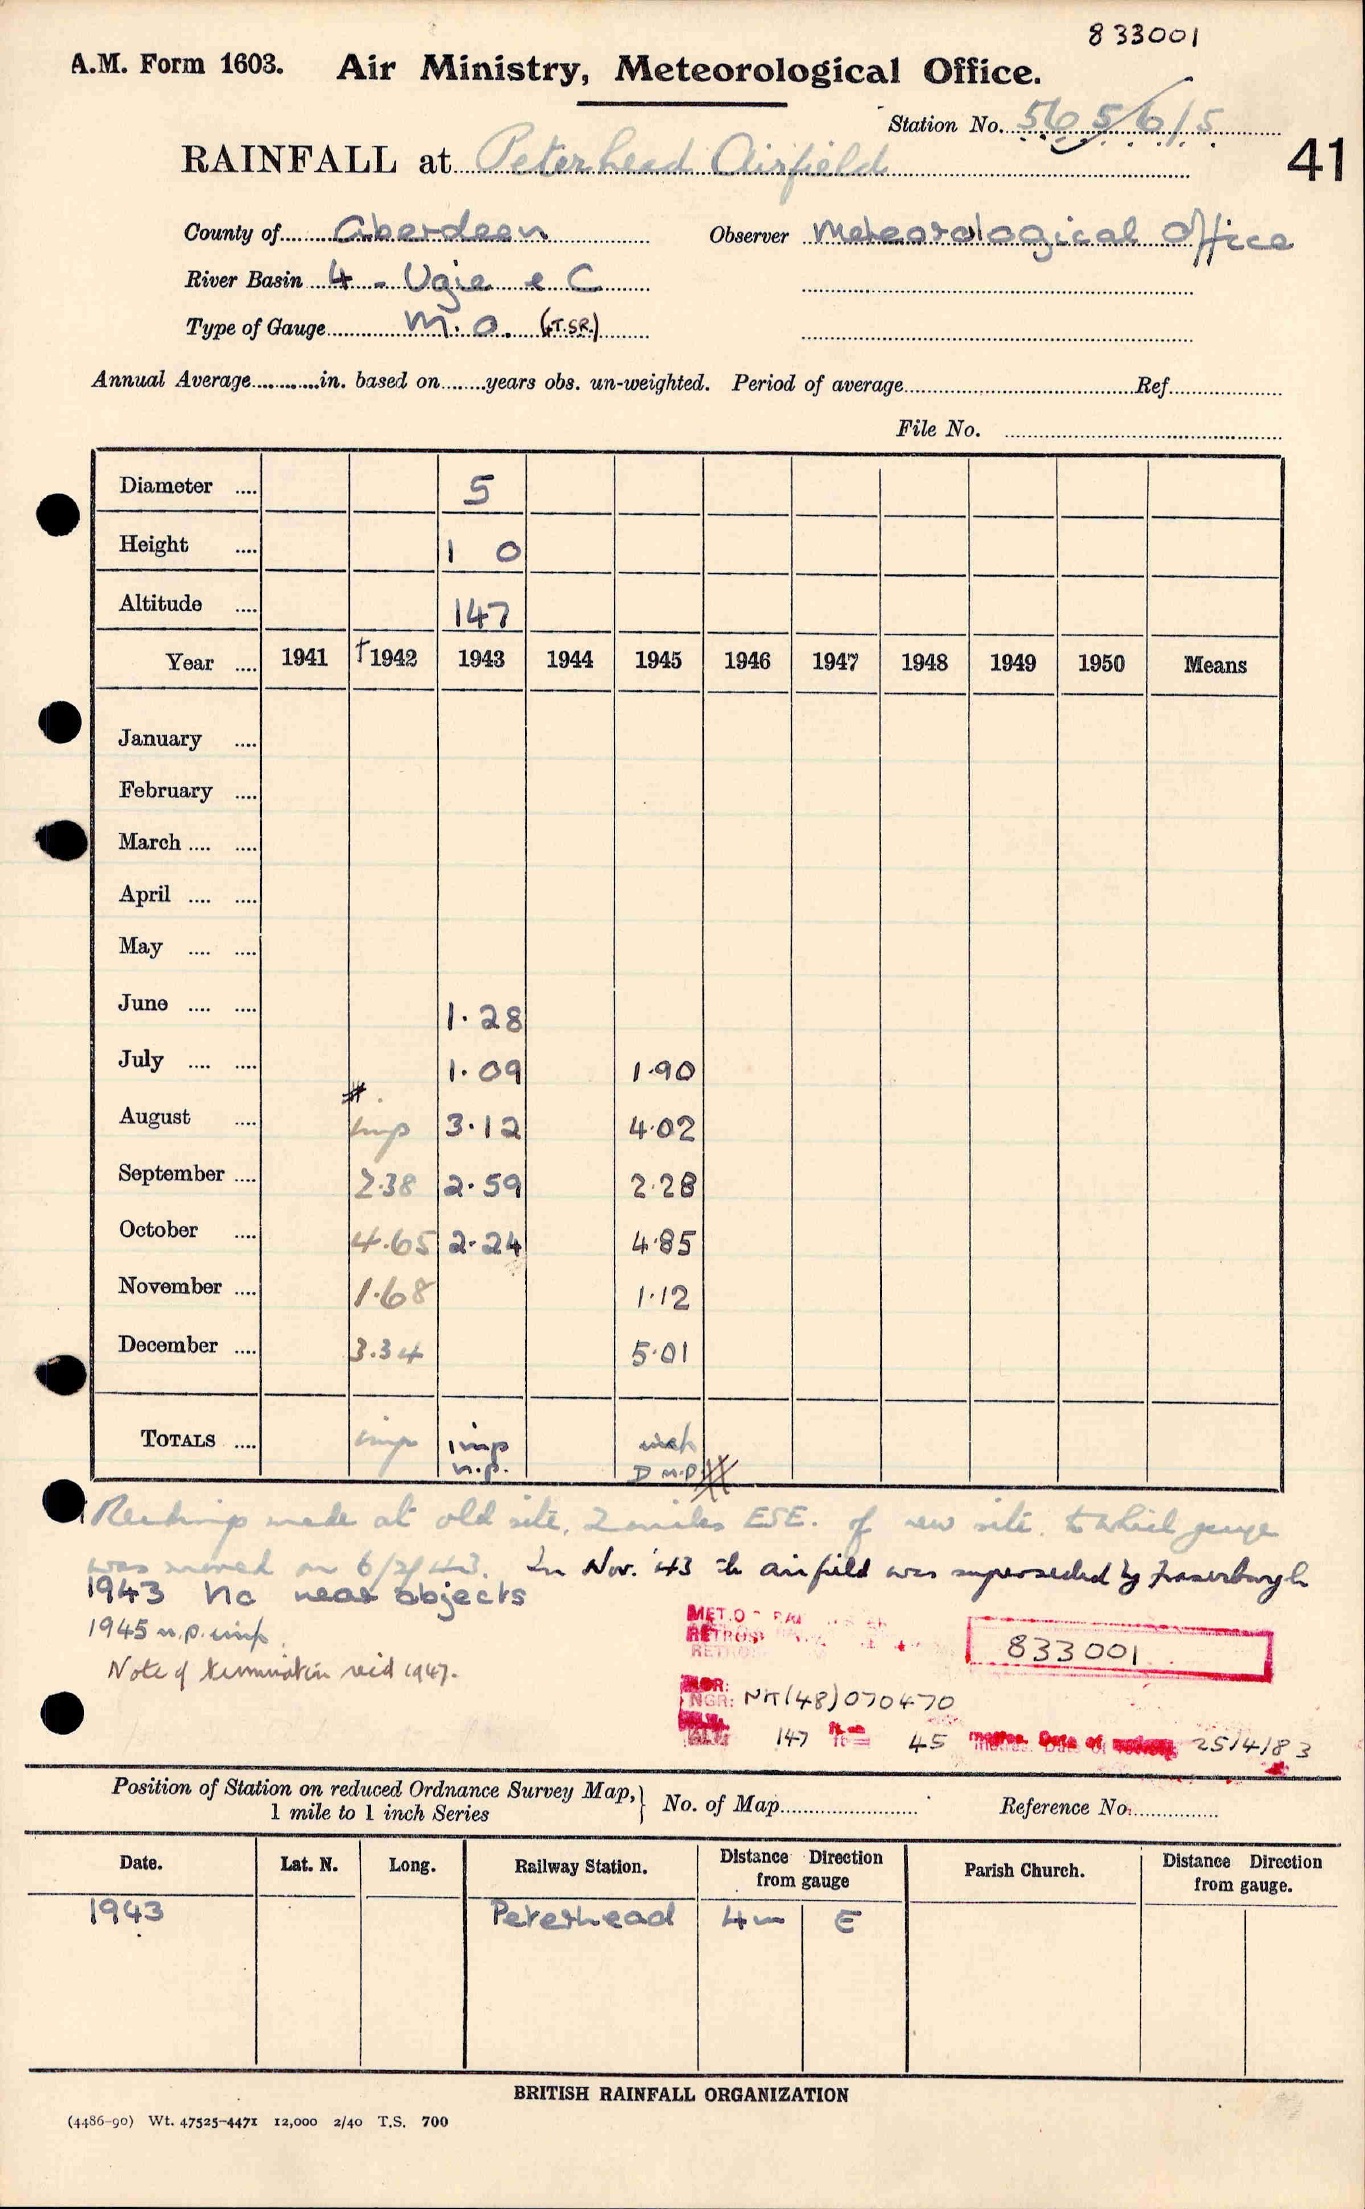 833001
A.M. Form 1603. Air Ministry, Meteorological Office.
Station No. 565615
RAINFALL at Peterhead Airfield
41
County of Aberdeen Observer Meteorological Office
River Basin 4 - Ugie & C
Type of Gauge M.O. (4T.SR.)
Annual Average............in. based on........years obs. un-weighted. Period of average....................Ref....................
File No. ....................
Diameter .... 5
Height .... 1 0
Altitude .... 147
Year .... 1941 †1942 1943 1944 1945 1946 1947 1948 1949 1950 Means
January ....
February ....
March .... ....
April .... ....
May .... ....
June .... .... 1.28
July .... .... 1.09 1.90
August .... imp 3.12 4.02
September .... 2.38 2.59 2.28
October .... 4.65 2.24 4.85
November .... 1.68 1.12
December .... 3.34 5.01
TOTALS .... imp imp
n.p. D n.p.
Readings made at old site, 2 miles ESE. of new site, to which gauge
was moved on 6/2/43. In Nov. '43 the airfield was superseded by Fraserburgh
1943 No near objects
1945 n.p. imp.
Note of termination recd 1947.
MET.O
RETROS
833001
NGR: NK(48)070470
ALT: 147 ft = 45 metres. Date of 25/4/83
Position of Station on reduced Ordnance Survey Map,
1 mile to 1 inch Series
No. of Map.................... Reference No.................
Date. Lat. N. Long. Railway Station. Distance Direction from gauge Parish Church. Distance Direction from gauge.
1943 Peterhead 4m E
BRITISH RAINFALL ORGANIZATION
(4486-90) Wt. 47525-4471 12,000 2/40 T.S. 700